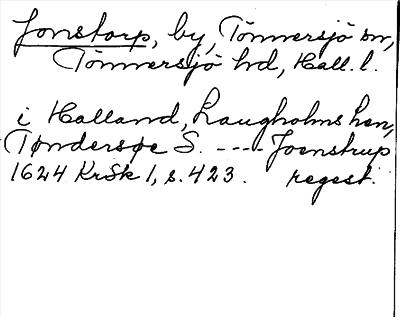 Jonstorp, by, Tönnersjö sn,
Tönnersjö hd, Hall. l.
i Halland, Laugholms hen,
Tøndersøe S. ---- Joenstrup
1624 KrSk 1, s. 423. regest.